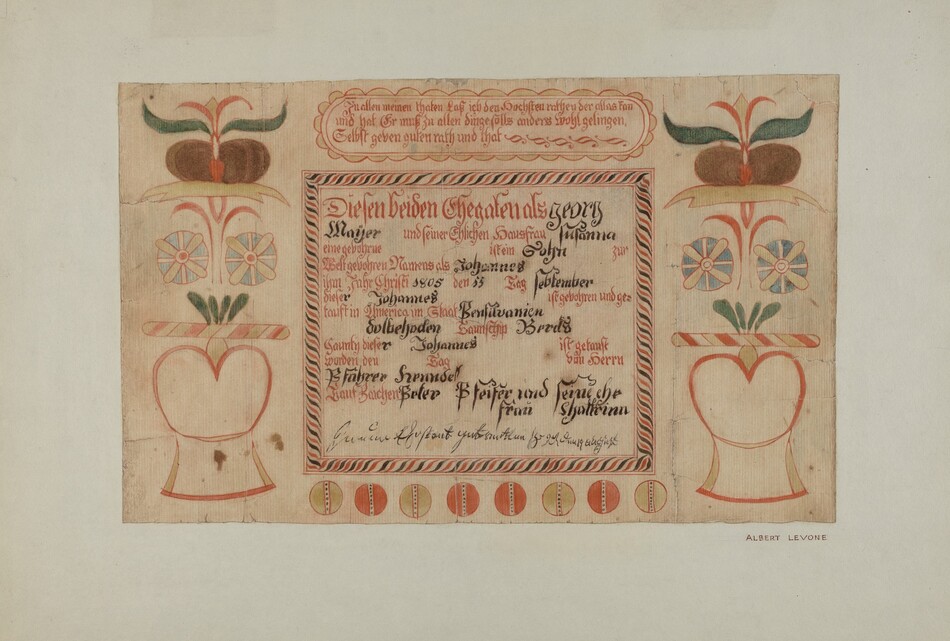 In allen meinen thaten Laß ich den Höchsten rathen der allas kan
und hat Er muß zu allen dinge solls anders Wohl gelingen,
Selbst geven guten rath und that
Diesen beiden Ehegaten als Georg
Maijer und seiner Ehlichen Hausfrau Susanna
eine gebohrne ist ein Sohn zur
Welt gebohren Namens als Johannes
ihm Jahr Christi 1805 den 11 Tag September
dieser Johannes ist gebohren und ge=
tauft in America im Staat Pensilvanien
Taunschip Berds
County dieser Johannes ist getauft
worden den Tag von Herrn
Pfahrer
Tauf Zaichen Peter Pfeifer und seine ehe
frau
ALBERT LEVONE